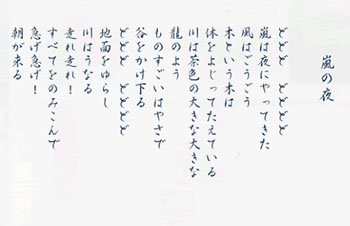 嵐の夜
どどど　どどど
嵐は夜にやってきた
風はごうごう
木という木は
体をよじってたえている
川は茶色の大きな大きな
龍のよう
ものすごいはやさで
谷をかけ下る
どどど　どどど
地面をゆらし
川はうなる
走れ走れ！
すべてをのみこんで
急げ急げ！
朝が来る